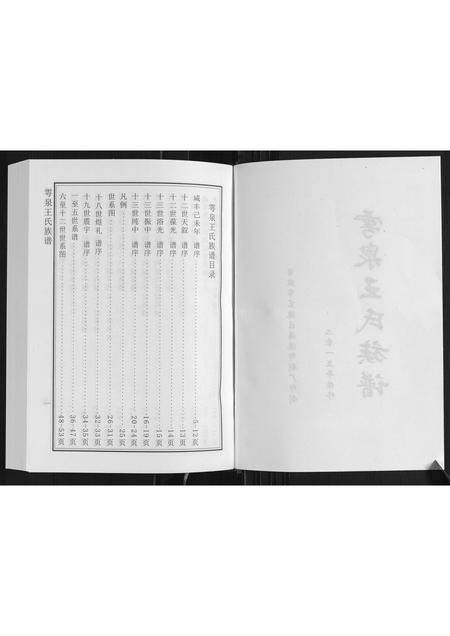 雩泉王氏族谱目录
咸丰己未年 谱序 5-12页
十二世天叙 谱序 13页
十二世葆光 谱序 14页
十三世浴光 谱序 15页
十三世振中 谱序 16-19页
十三世纯中 谱序 20-24页
凡例 25页
世系图 26-31页
十八世煜礼 谱序 32-33页
十九世震宇 谱序 34-35页
一至五世系谱 36-47页
六至十二世世系图 48-53页
雩泉王氏族谱
雩泉王氏族谱
二零一五年续修